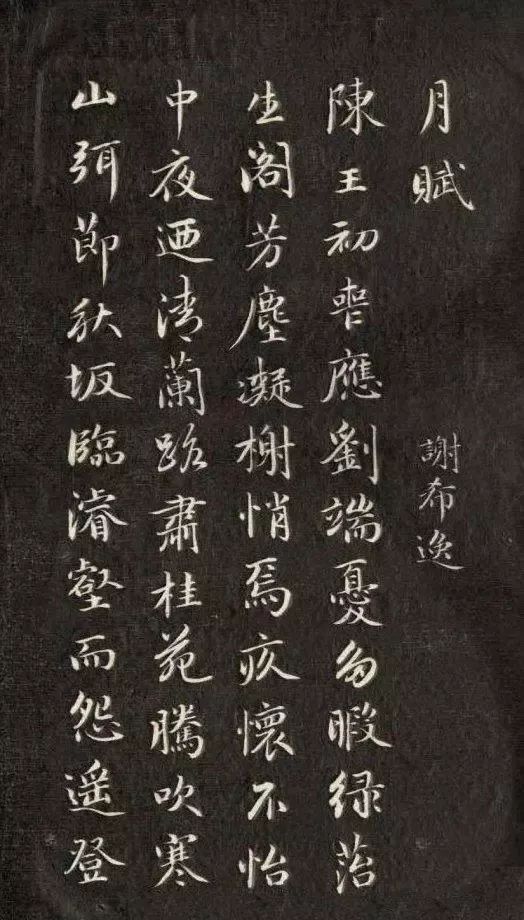 月賦 謝希逸
陳王初喪應劉端憂多暇緑菭
生閣芳塵凝榭悄焉疚懷不怡
中夜迺清蘭路肅桂苑騰吹寒
山弭節秋坂臨濬壑而怨遥登